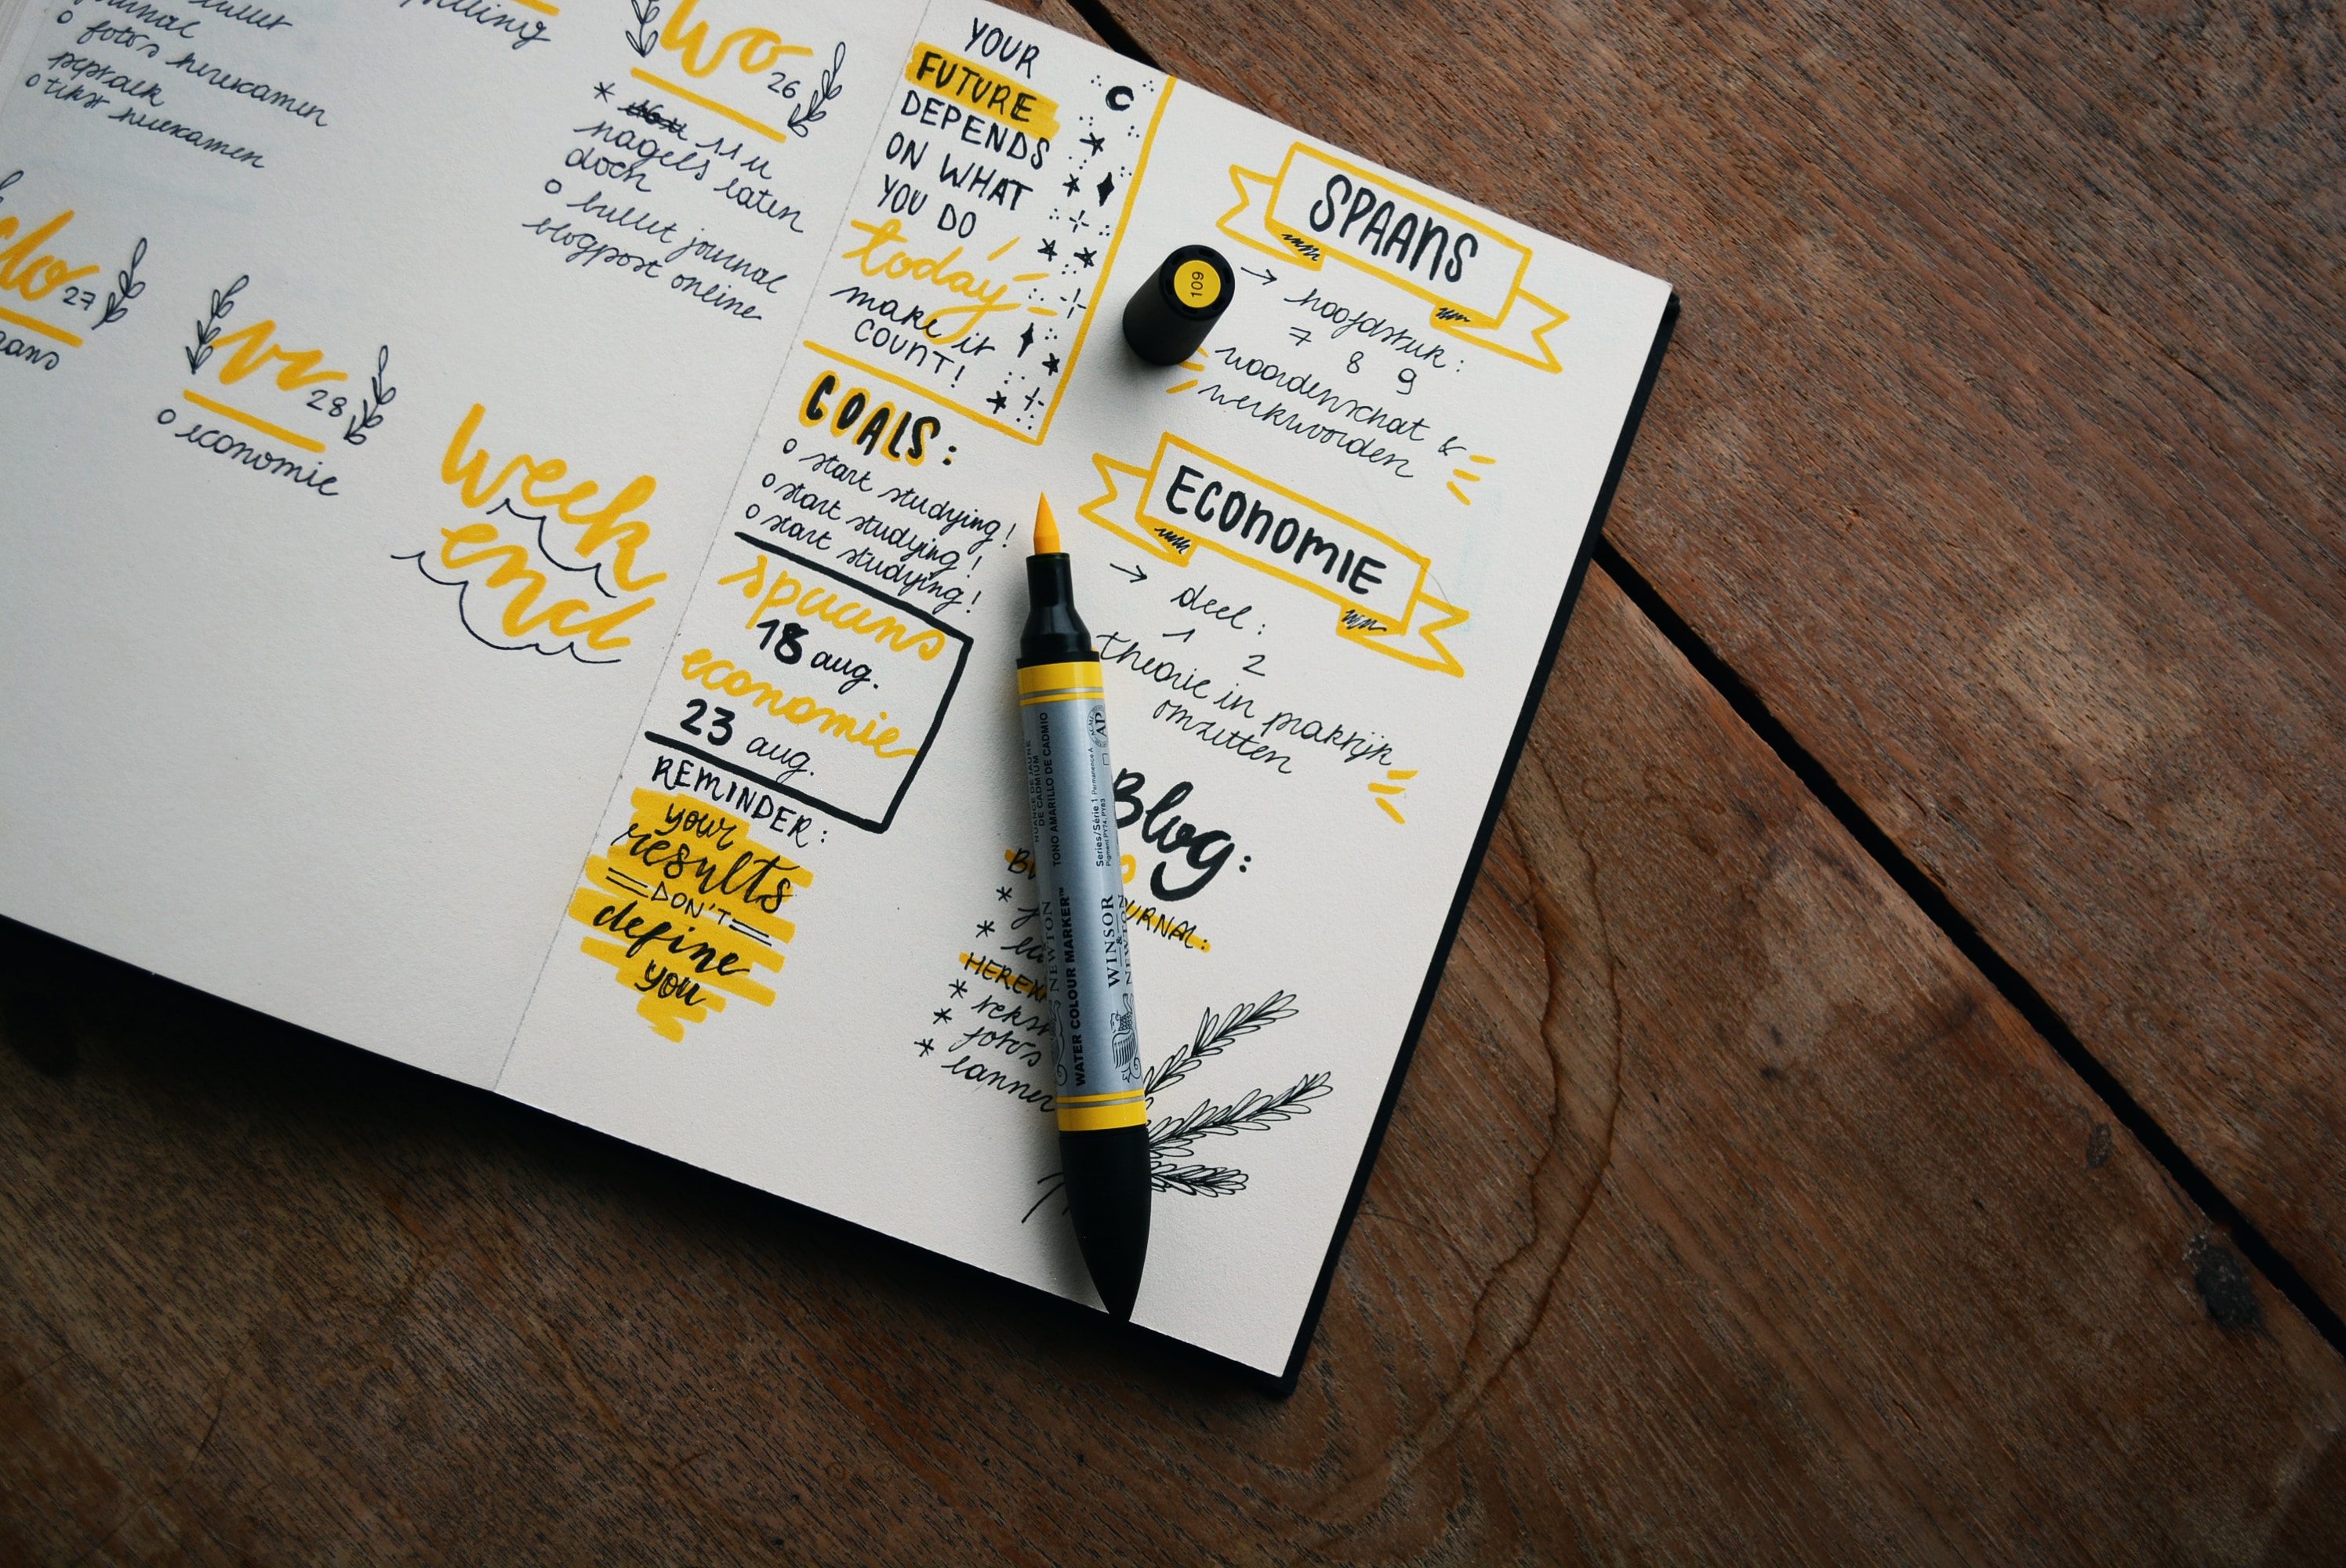 bullet
journal
o foto's hierexamen
peptalk
o tekst hierexamen
do 27
vr 28
o economie
Week
end
wo 26
* 11 u
nagels laten
doen
o bullet journal
blogpost online
YOUR
FUTURE
DEPENDS
ON WHAT
YOU DO
today
make it
COUNT!
GOALS:
o start studying!
o start studying!
o start studying!
spaans
18 aug.
economie
23 aug.
REMINDER:
your
results
DON'T
define
you
SPAANS
→ hoofdstuk:
7 8 9
woordenschat &
werkwoorden
ECONOMIE
→ deel:
1 2
theorie in praktijk
omzetten
Blog:
*
*
*
* foto's
*
109
NUANCE DE JAUNE
DE CADMIUM
TONO AMARILLO DE CADMIO
Series/Série 1 Permanence A
Pigment PY74, PY83
AP
NEWTON
WATER COLOUR MARKER™
WINSOR
&
NEWTON